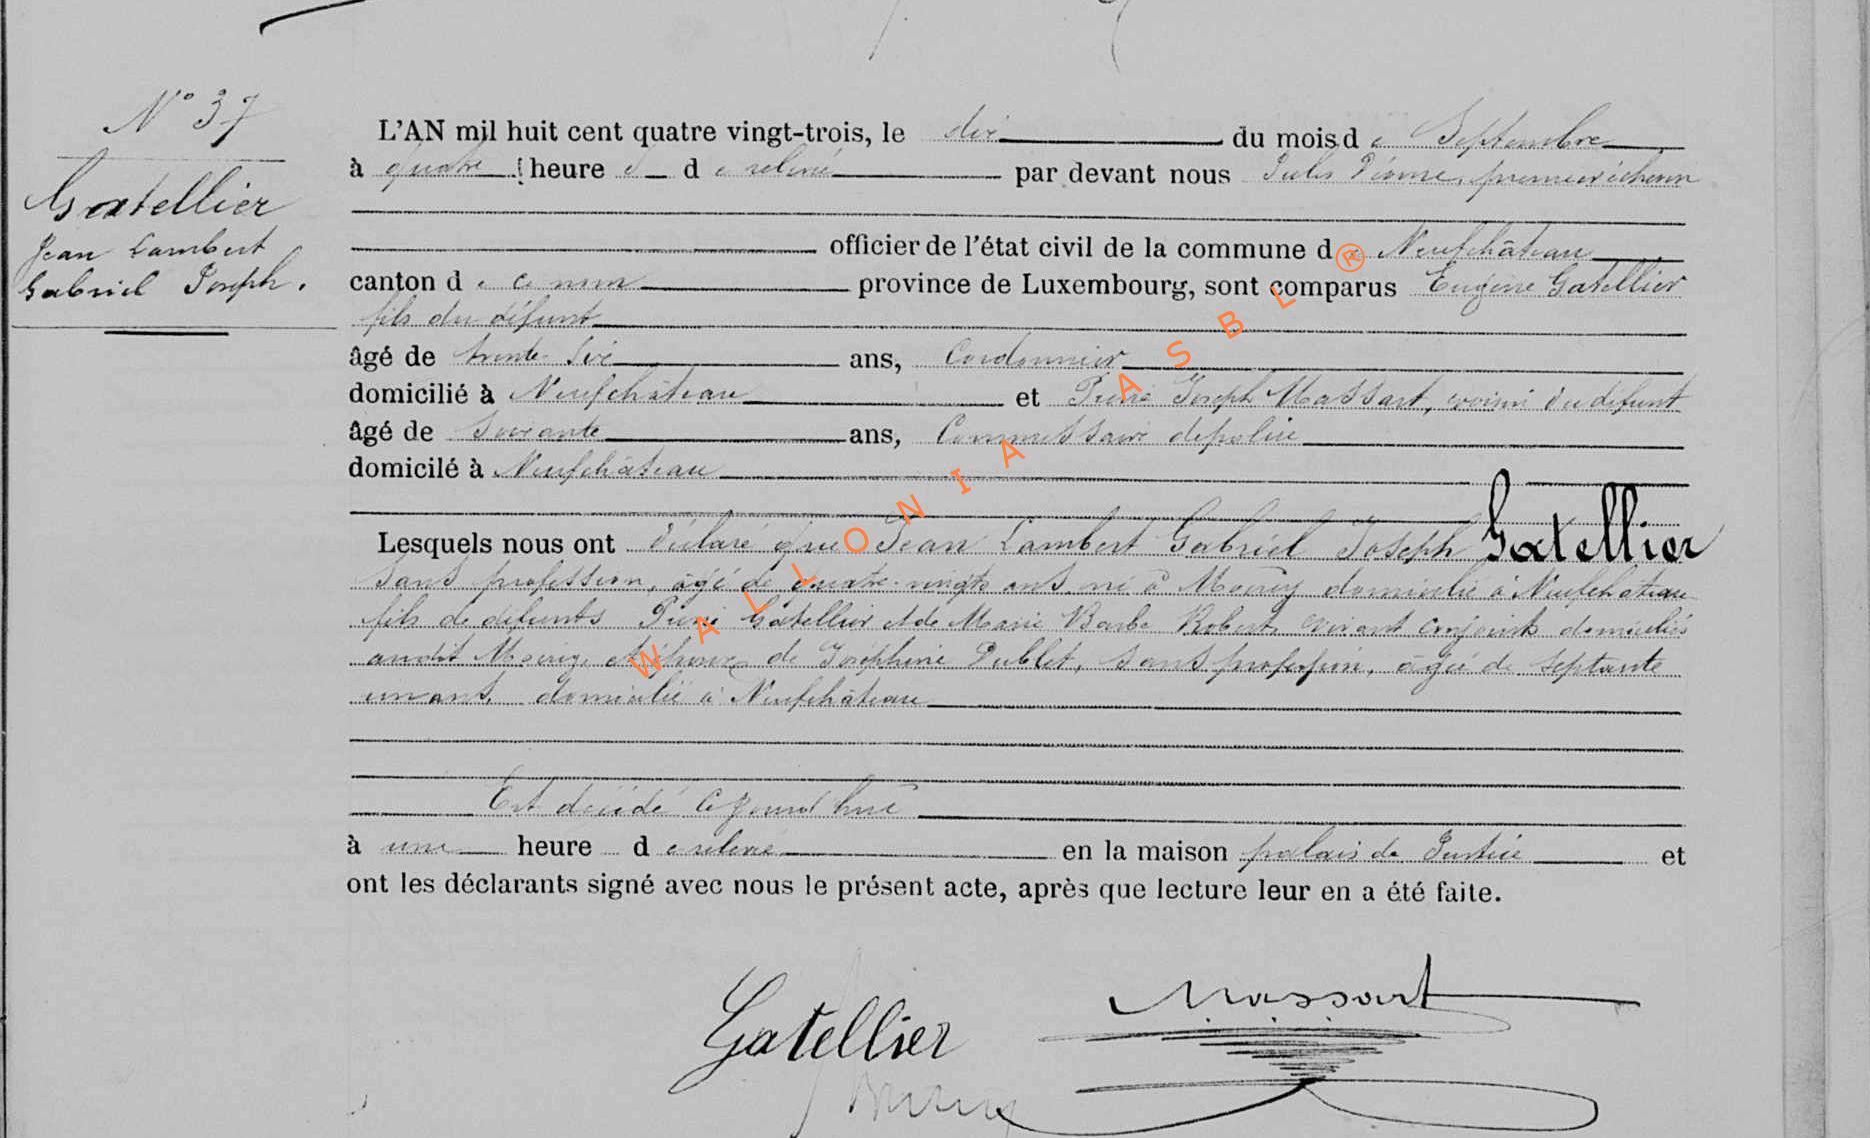 N° 37
Gatellier
Jean Lambert
Gabriel Joseph.
L'AN mil huit cent quatre vingt-trois, le dix du mois d e Septembre
à quatre heure s d e relevé par devant nous Jules, premier échevin
officier de l'état civil de la commune d e Neufchâteau
canton d e ce nom province de Luxembourg, sont comparus Eugène Gatellier
fils du défunt
âgé de trente six ans, Cordonnier
domicilié à Neufchâteau et Pierre Joseph Massart, voisin du défunt
âgé de soixante ans, Commissaire de police
domicilé à Neufchâteau
Lesquels nous ont déclaré que Jean Lambert Gabriel Joseph Gatellier
sans profession, âgé de quatre-vingts ans, né à domicilié à Neufchâteau
fils de défunts Pierre Gatellier et de Marie Barbe Robert, vivant conjoints domiciliés
audit et époux de Josephine Publet, sans profession, âgée de septante
un ans, domicilié à Neufchâteau
Est décédé ce jourd'hui
à une heure d e relevée en la maison palais de Justice et
ont les déclarants signé avec nous le présent acte, après que lecture leur en a été faite.
Gatellier Massart
WALLONIA ASBL ®